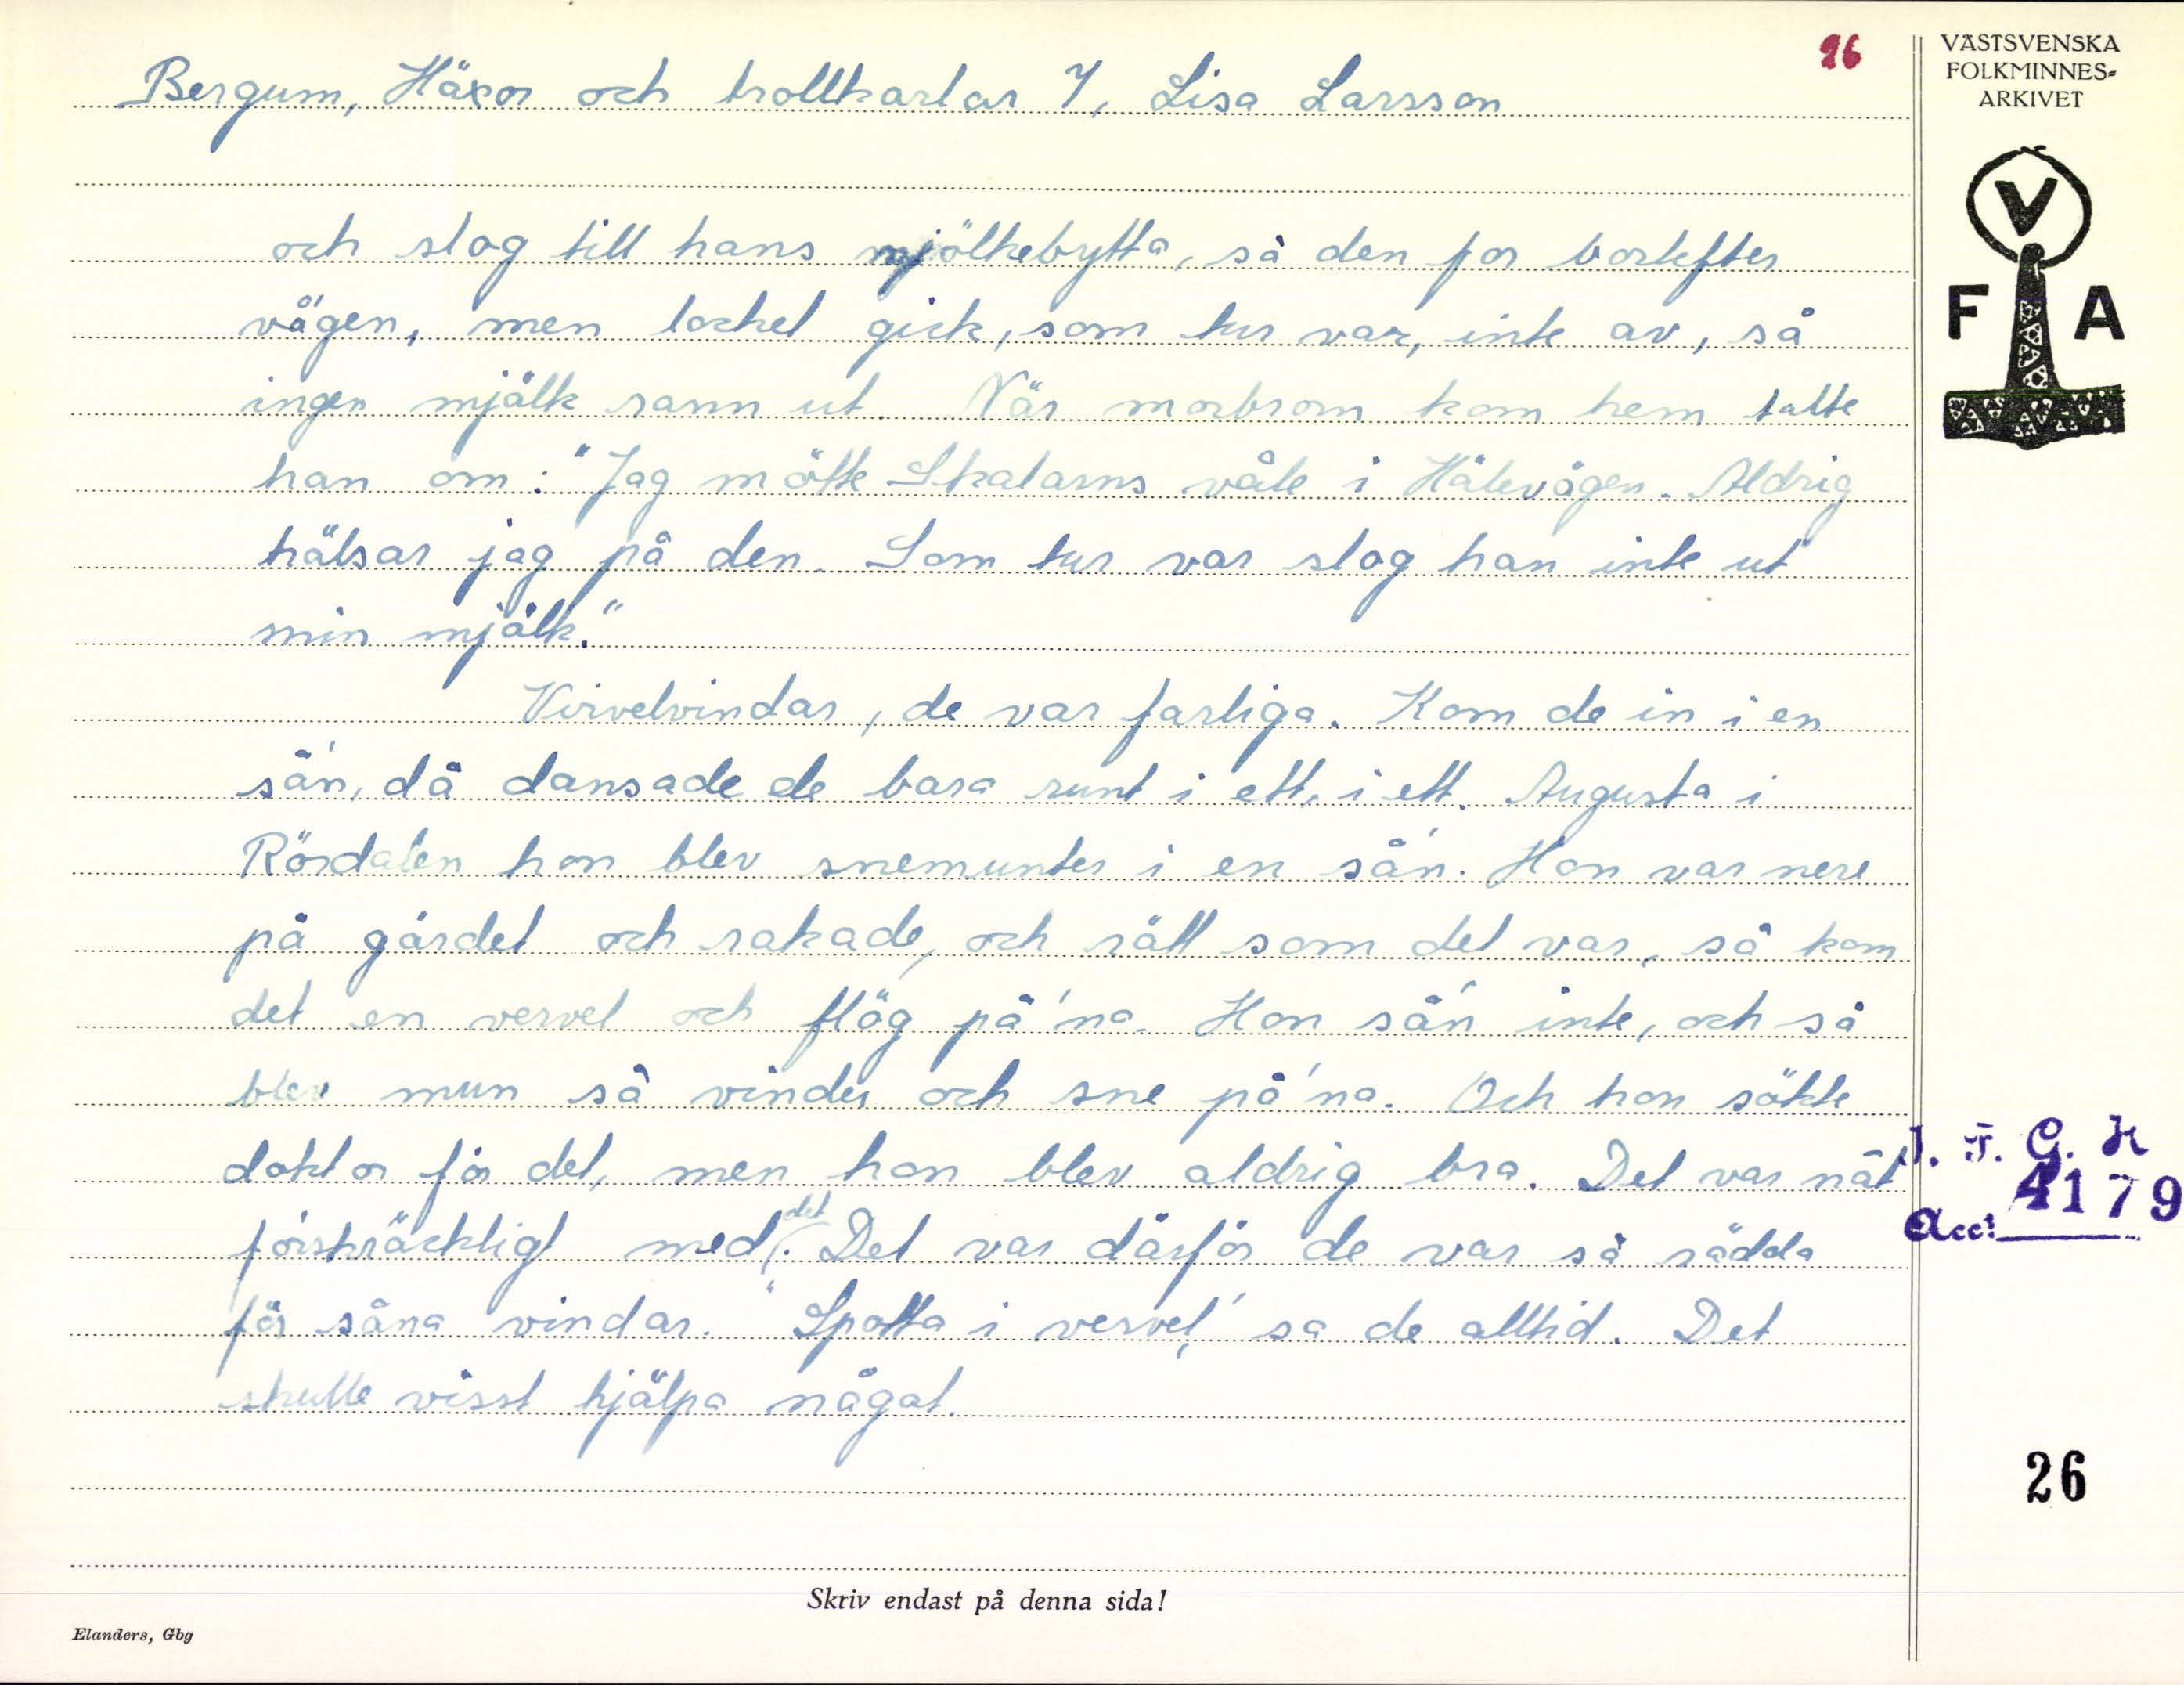 Bergum, Häxor och trollkarlar 7, Lisa Larsson
26
VÄSTSVENSKA
FOLKMINNES-
ARKIVET
V
F A
och slog till hans mjölkebytta, så den for bortefter
vägen, men locket gick, som tur var, inte av, så
ingen mjölk rann ut. När morbrorn kom hem talte
han om: "Jag mötte Skalarns våle i Hålevägen. Aldrig
hälsar jag på den. Som tur var slog han inte ut
min mjölk."
Virvelvindar, de var farliga. Kom de in i en
sån, då dansade de bara runt i ett, i ett. Augusta i
Rördalen hon blev snemunter i en sån. Hon var nere
på gärdet och rakade, och rätt som det var, så kom
det en vervel och flög på'na. Hon så'n inte, och så
blev mun så vinder och sne på'na. Och hon sökte
doktor för det, men hon blev aldrig bra. Det var nåt
förskräckligt med det. Det var därför de var så rädda
för såna vindar. "Spotta i vervel," sa de alltid. Det
skulle visst hjälpa något.
I. F. G. H
Acc: 4179
26
Skriv endast på denna sida!
Elanders, Gbg